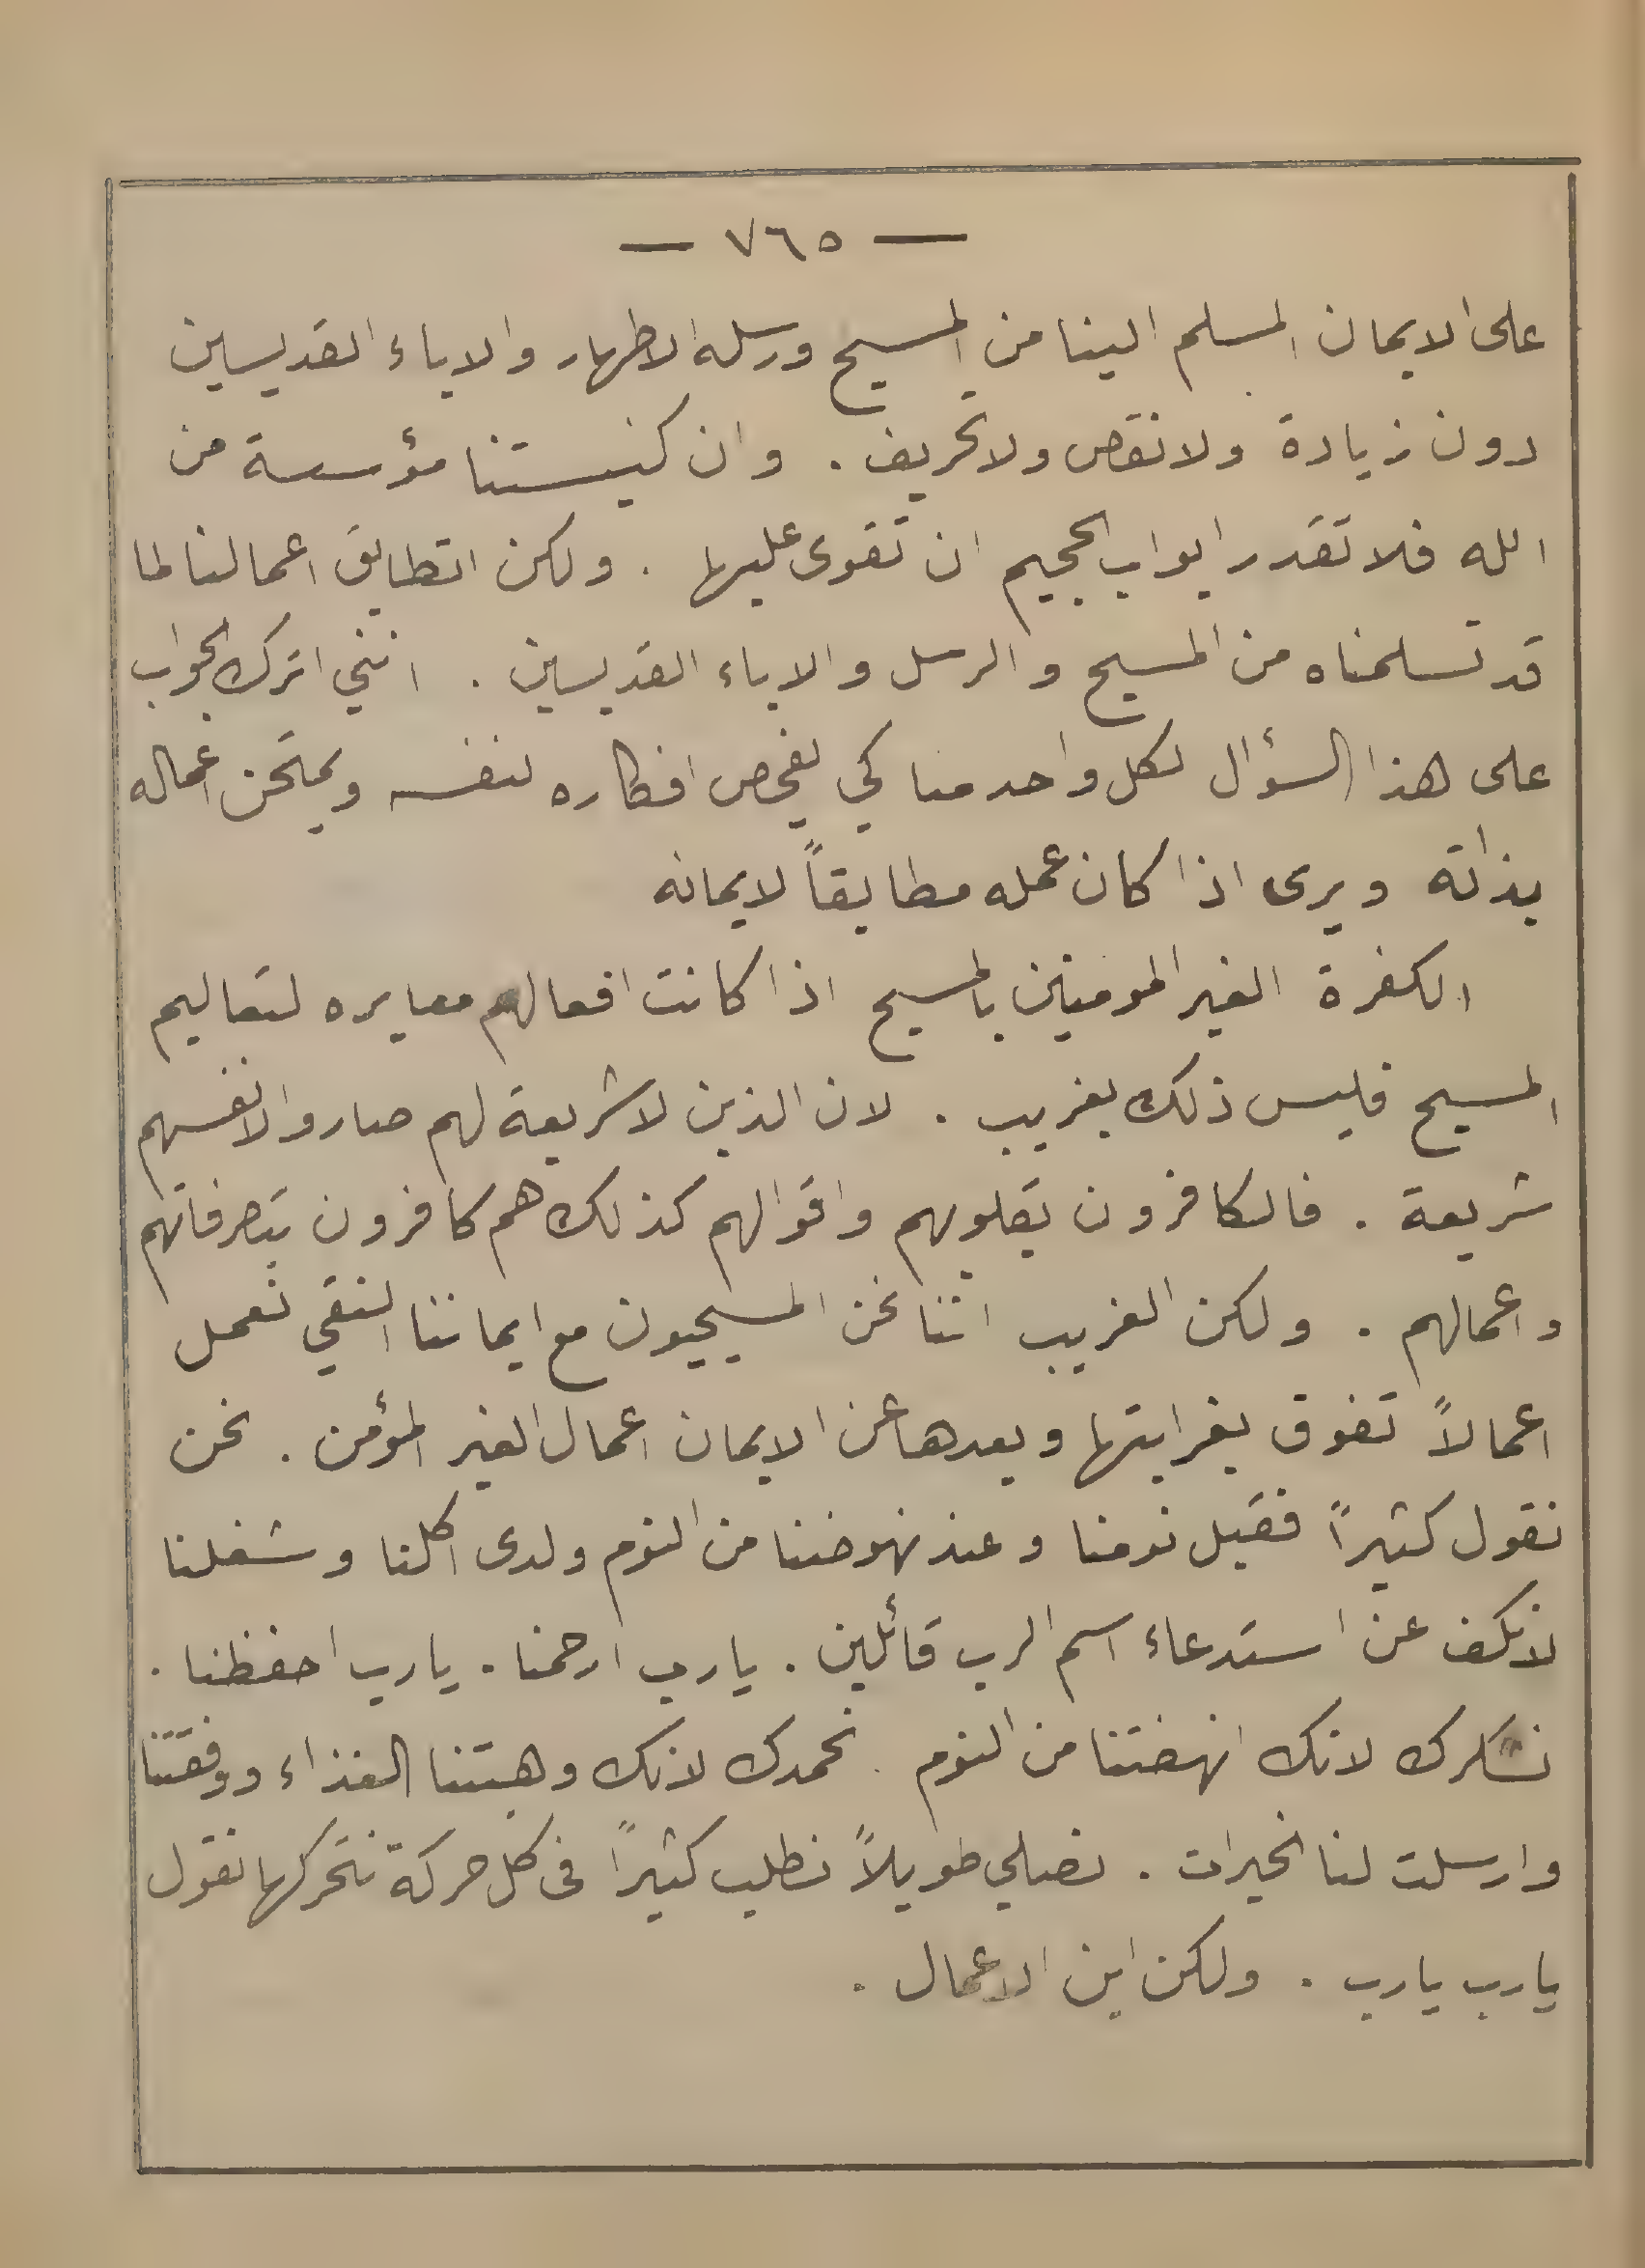 — ٧٦٥ —
على الايمان المسلم الينا من المسيح ورسله الاطهار والاباء القديسين
دون زيادة ولا نقص ولا تحريف . وان كنيستنا مؤسسة من
الله فلا تقدر ابواب الجحيم ان تقوى عليها . ولكن اتطابق اعمالنا لما
قد تسلمناه من المسيح والرسل والاباء القديسين . انني اترك الجواب
على هذا السؤال لكل واحد منا كي يفحص افكاره لنفسه ويمتحن اعماله
بذاته ويرى اذا كان عمله مطابقاً لايمانه
الكفرة الغير المومنين بالمسيح اذا كانت افعالهم معايره لتعاليم
المسيح فليس ذلك بغريب . لان الذين لا شريعة لهم صاروا لانفسهم
شريعة . فالكافرون بقلوبهم واقوالهم كذلك هم كافرون بتصرفاتهم
واعمالهم . ولكن الغريب اننا نحن المسيحيون مع ايماننا النقي نعمل
اعمالاً تفوق بغرابتها وبعدها عن الايمان اعمال الغير المؤمن . نحن
نقول كثيراً فقبل نومنا وعند نهوضنا من النوم ولدى اكلنا وشغلنا
لا نكف عن استدعاء اسم الرب قائلين . يارب ارحمنا . يارب احفظنا .
نشكرك لانك انهضتنا من النوم . نحمدك لانك وهبتنا الغذاء ووفقتنا
وارسلت لنا الخيرات . نصلي طويلاً نطلب كثيراً في كل حركة نتحركها نقول
يارب يارب . ولكن اين الاعمال .